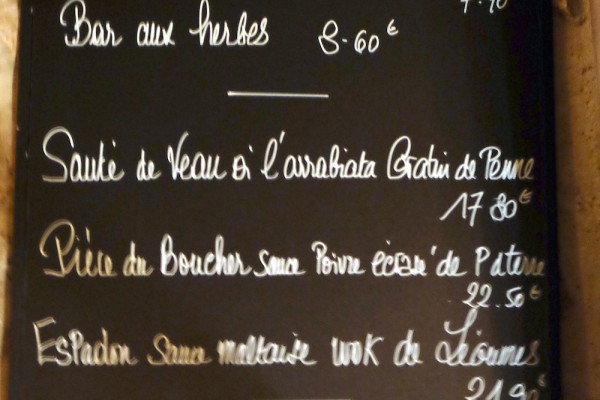 Bar aux herbes 8.60€
Sauté de Veau à l'arrabiata Gratin de Penne
17 80€
Pièce du Boucher sauce Poivre écrasé de P d terre
22.50€
Espadon sauce maltaise wok de Légumes
21.90€